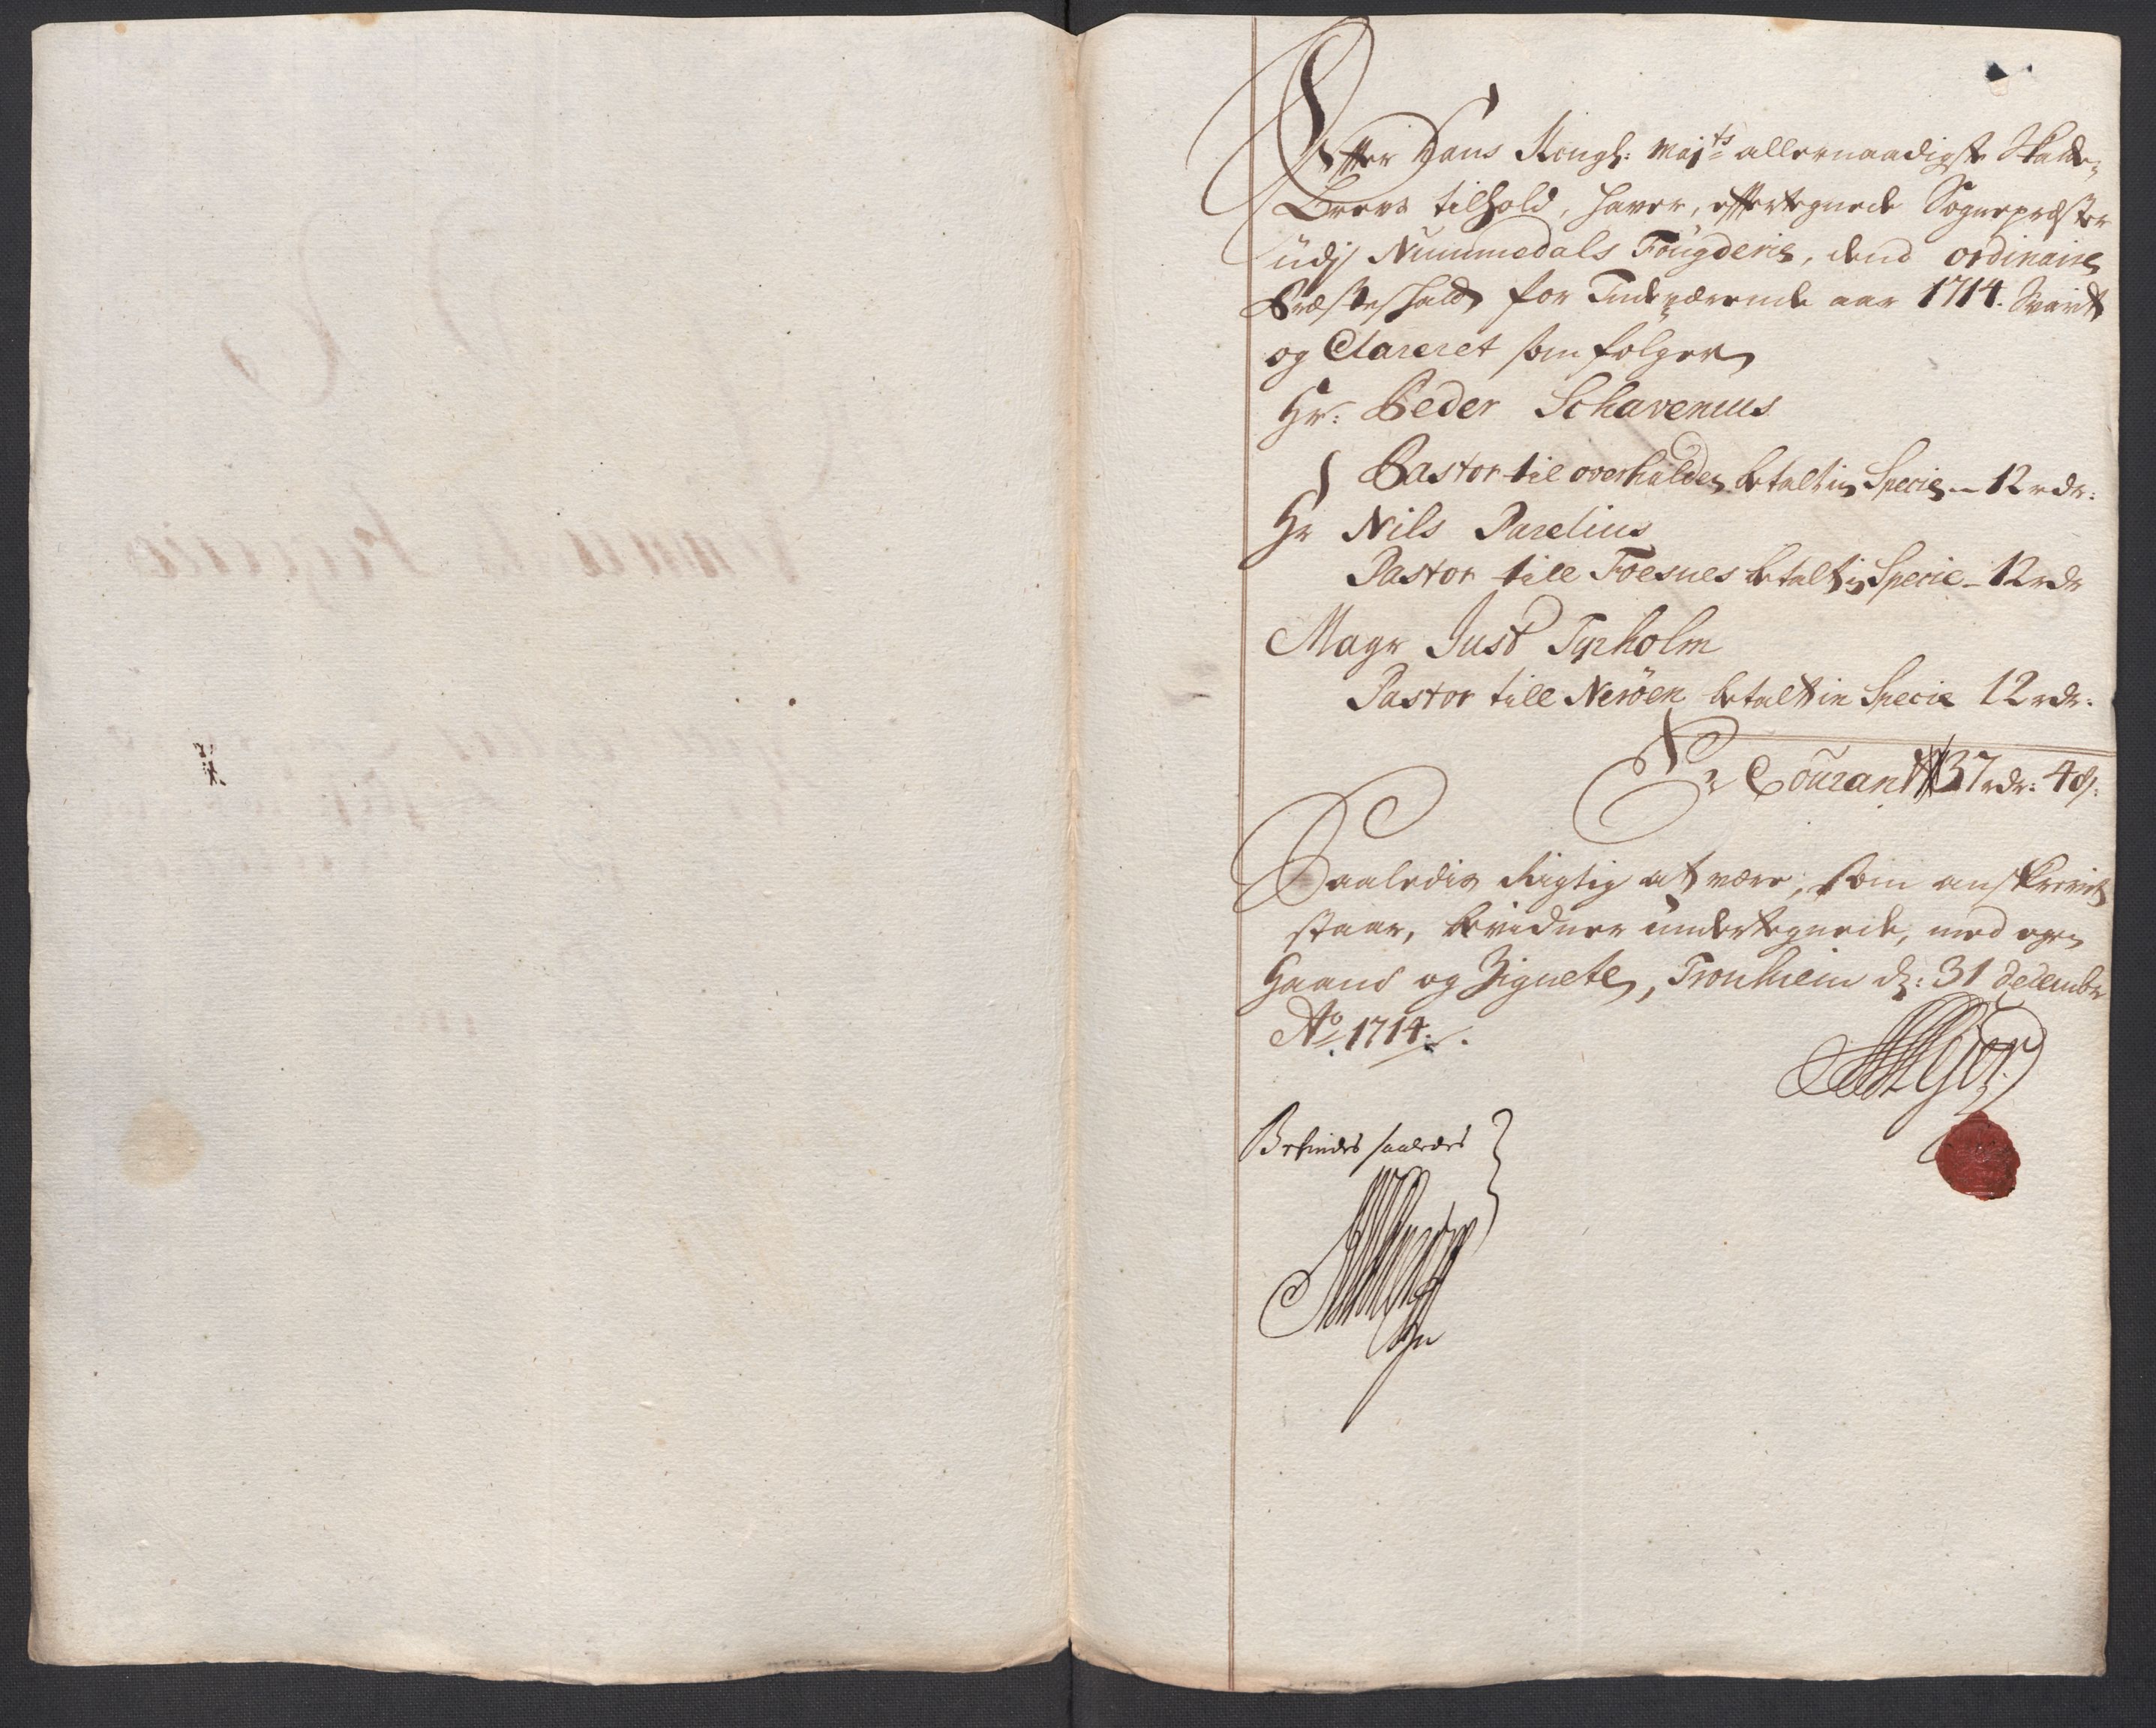 Effter Hans Kongl: Maj:ts allernaadigste Skatte-
Brevs tilhold, haver, efftertegnede Sognepræster
udj Nummedals Fougderie, dend ordinaire
Præsteskatt for Indeværende aar 1714. Svaret
og Clareret som følger
Hr: Peder Schavenius
Pastor til overhalden betalt in Specie - 12 rdr:
Hr Nils Parelius
Pastor till Foesnes betalt in Specie - 12 rdr
Magr Just Tyrholm
Pastor till Neröen betalt in Specie 12 rdr:
Er Courant 37 rdr: 48 s:
Saaledis Rigtig at være, som anskrevet
staar, bevidner undertegnede, med egen
Haand og Zignete, Tronhiem d: 31 decembr
Ao 1714.
Befindes saaledes